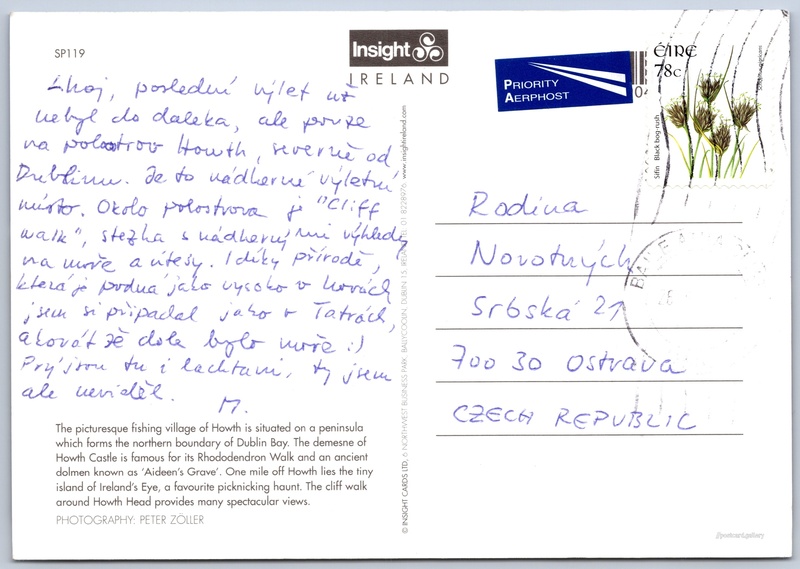 SP119
Insight
IRELAND
PRIORITY
AERPHOST
04
ÉIRE
78c
Sifín Black bog-rush
Ahoj, poslední výlet už
nebyl do daleka, ale pouze
na poloostrov Howth, severně od
Dublinu. Je to nádherné výletní
místo. Okolo polostrova je "Cliff
walk", stezka s nádhernými výhledy
na moře a útesy. I díky přírodě,
která je podobná jako vysoko v horách
jsem si připadal jako v Tatrách,
akorát že dole bylo moře :)
Prý jsou tu i lachtani, ty jsem
ale neviděl.
M.
Rodina
Novotných
Srbská 21
700 30 Ostrava
CZECH REPUBLIC
The picturesque fishing village of Howth is situated on a peninsula
which forms the northern boundary of Dublin Bay. The demesne of
Howth Castle is famous for its Rhododendron Walk and an ancient
dolmen known as 'Aideen's Grave'. One mile off Howth lies the tiny
island of Ireland's Eye, a favourite picknicking haunt. The cliff walk
around Howth Head provides many spectacular views.
PHOTOGRAPHY: PETER ZÖLLER
© INSIGHT CARDS LTD, 6 NORTHWEST BUSINESS PARK, BALLYCOOLIN, DUBLIN 15, TEL: 01 8228976. www.insightireland.com
//postcard.gallery